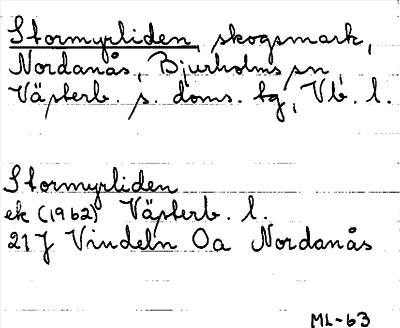 Stormyrliden, skogsmark,
Nordanås, Bjurholms sn,
Västerb. s. doms. tg, Vb. l.
Stormyrliden
ek (1962) Västerb. l.
21J Vindeln Oa Nordanås
ML-63